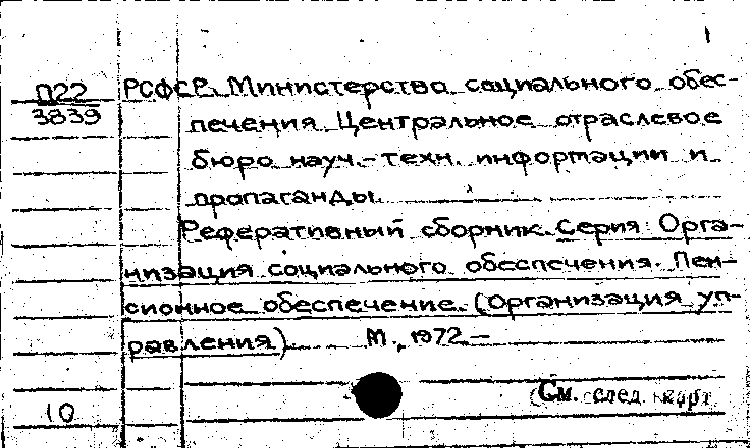 1
П22
3839
РСФСР. Министерство социального обес-
печения. Центральное отраслевое
бюро науч.-техн. информации и
пропаганды.
Реферативный сборник. Серия: Орга-
низация социального обеспечения. Пен-
сионное обеспечение. (Организация уп-
равления). М., 1972 –
(См. след. карт.
10